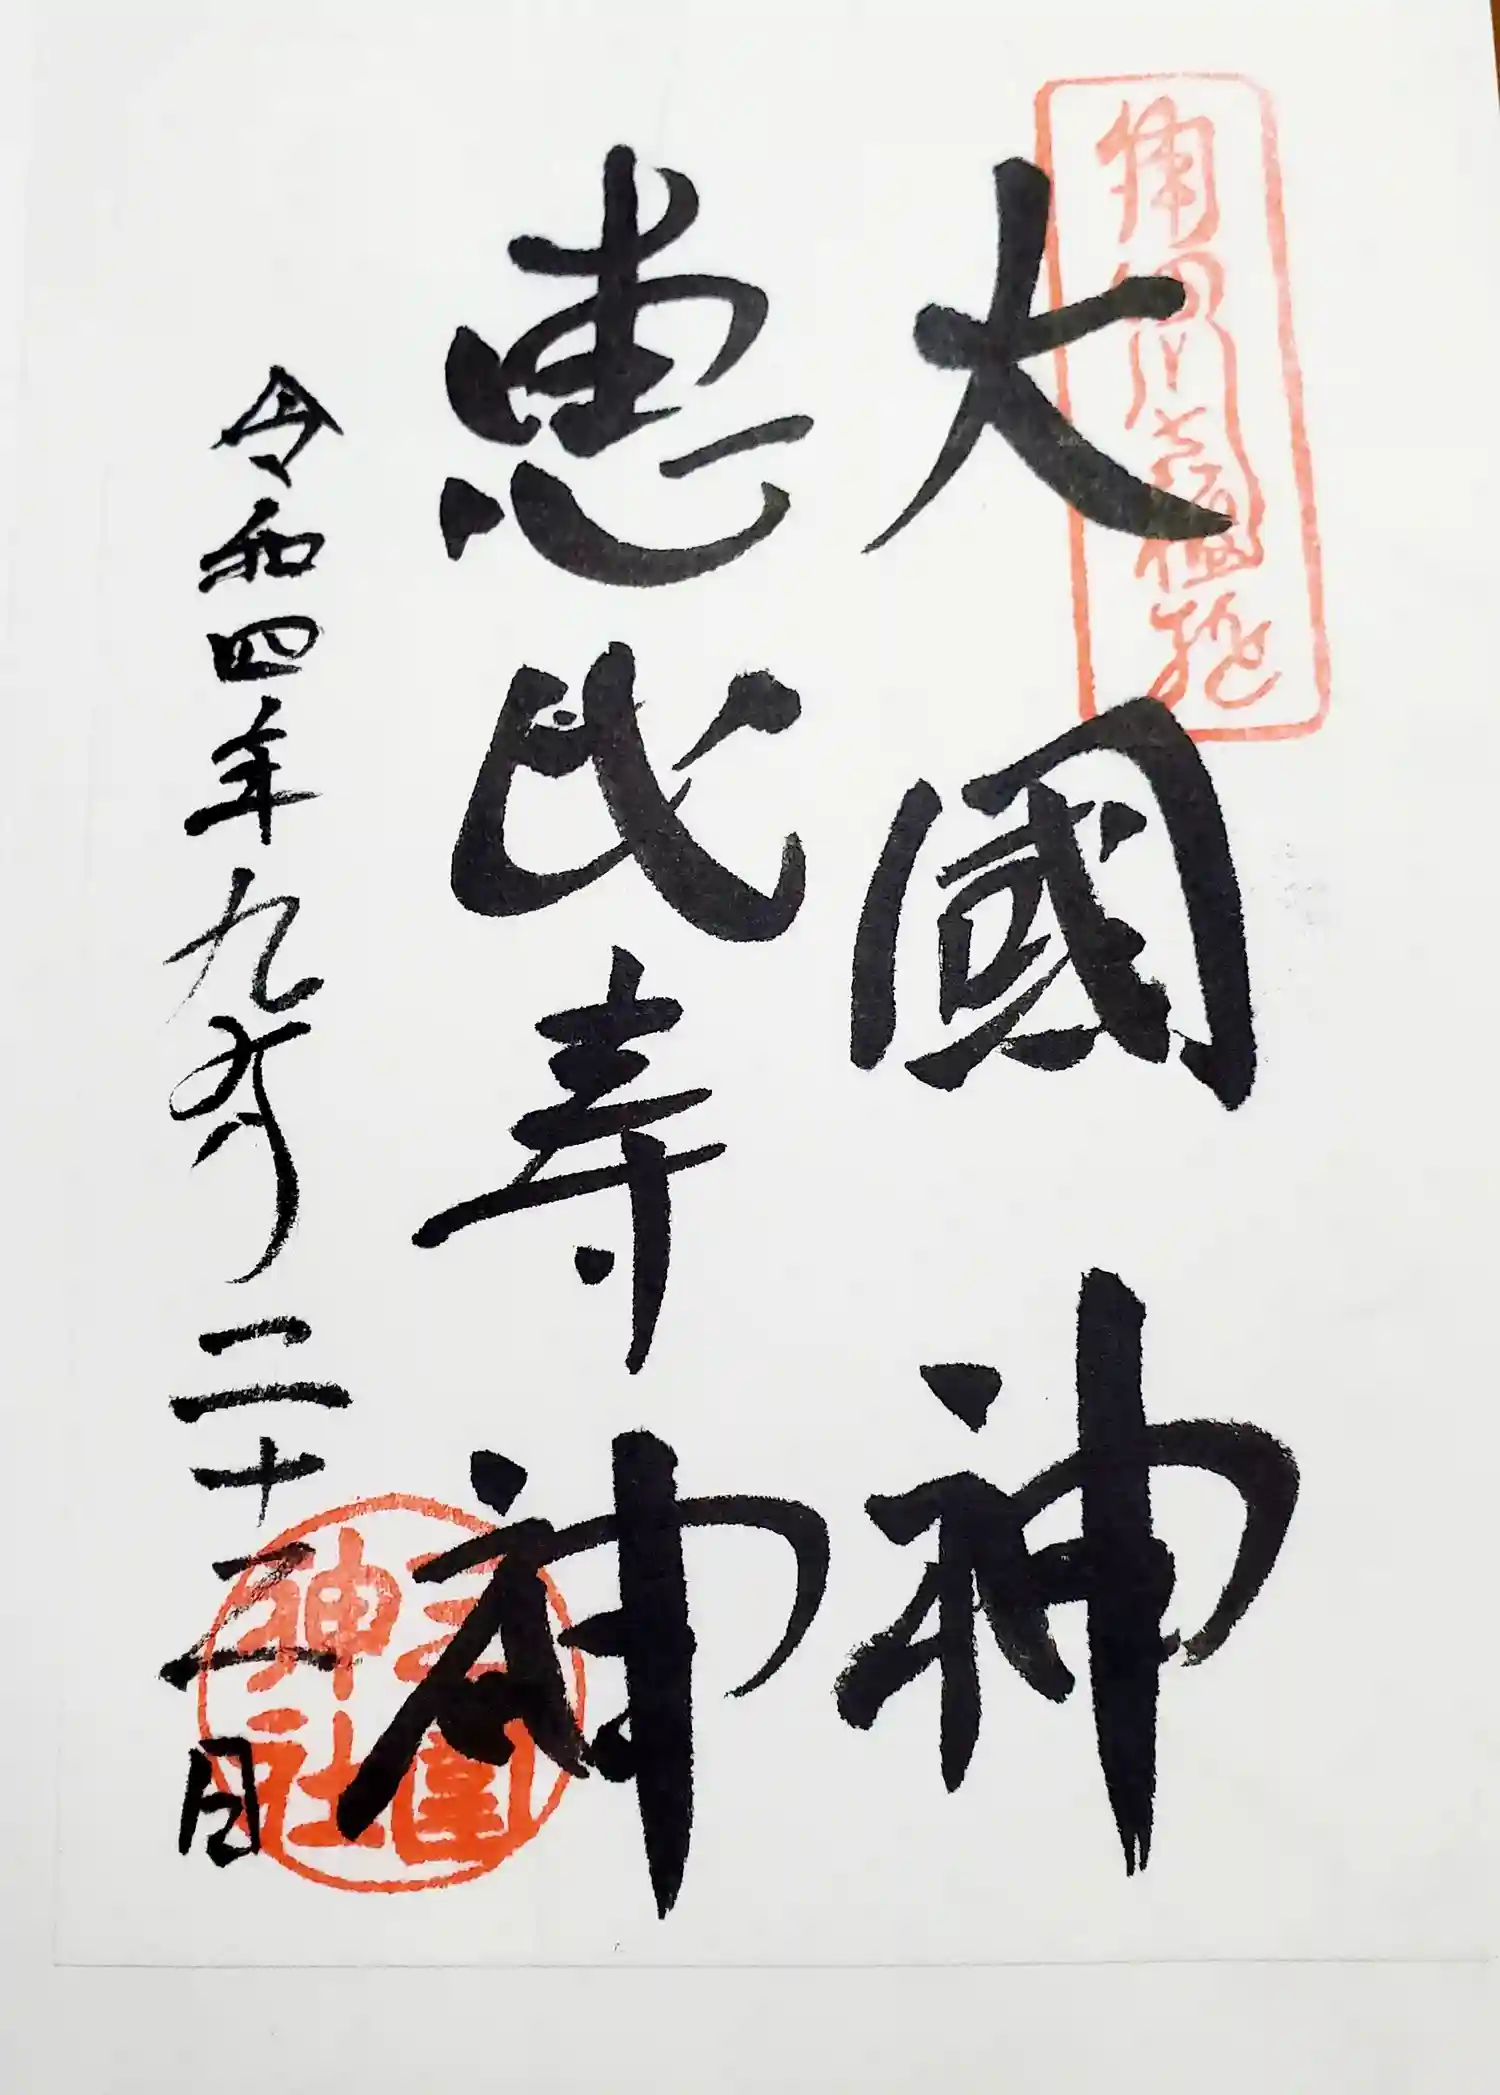 大國神
恵比寿神
令和四年九月二十二日
三圍
神社